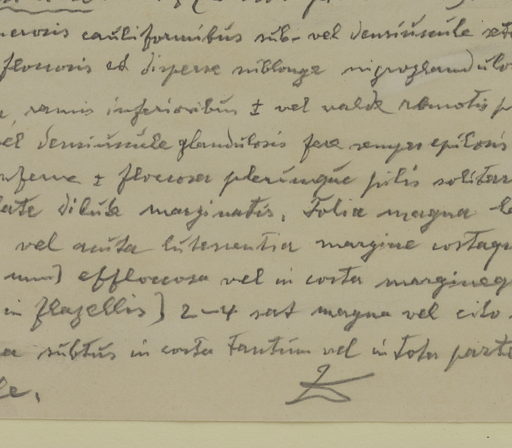 cauliformibus sub- vel densiuscule
floccosis et disperse sublonge nigroglandulo
ramis inferioribus ± vel valde remotis p
vel densiuscule glandulosis fere semper epilosis
inferne ± floccosa plerumque pilis solitar
late dilute marginatis. Folia magna
vel acuta lutescentia margine costaqu
effloccosa vel in costa margineq
in flagellis) 2-4 sat magna vel cito
subtus in costa tantum vel in tota parte
le.